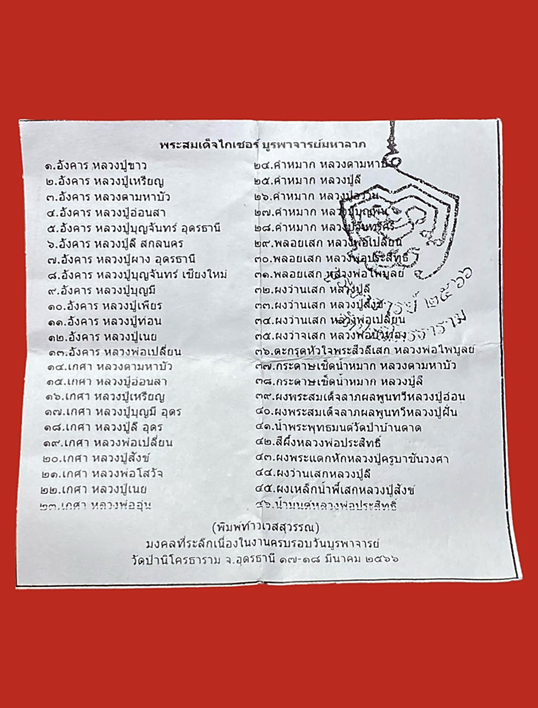 พระสมเด็จไกเซอร์ บูรพาจารย์มหาลาภ
๑.อังคาร หลวงปู่ขาว
๒.อังคาร หลวงปู่เหรียญ
๓.อังคาร หลวงตามหาบัว
๔.อังคาร หลวงปู่อ่อนสา
๕.อังคาร หลวงปู่บุญจันทร์ อุดรธานี
๖.อังคาร หลวงปู่ลี สกลนคร
๗.อังคาร หลวงปู่ผาง อุดรธานี
๘.อังคาร หลวงปู่บุญจันทร์ เชียงใหม่
๙.อังคาร หลวงปู่บุญมี
๑๐.อังคาร หลวงปู่เพียร
๑๑.อังคาร หลวงปู่ท่อน
๑๒.อังคาร หลวงปู่เนย
๑๓.อังคาร หลวงพ่อเปลี่ยน
๑๔.เกศา หลวงตามหาบัว
๑๕.เกศา หลวงปู่อ่อนสา
๑๖.เกศา หลวงปู่เหรียญ
๑๗.เกศา หลวงปู่บุญมี อุดร
๑๘.เกศา หลวงปู่ลี อุดร
๑๙.เกศา หลวงพ่อเปลี่ยน
๒๐.เกศา หลวงปู่สังข์
๒๑.เกศา หลวงพ่อโสวัจ
๒๒.เกศา หลวงปู่เนย
๒๓.เกศา หลวงพ่ออุ่น
๒๔.คำหมาก หลวงตามหาบัว
๒๕.คำหมาก หลวงปู่ลี
๒๖.คำหมาก หลวงปู่
๒๗.คำหมาก หลวงปู่บุญพิน
๒๘.คำหมาก หลวงปู่จันทร์ศรี
๒๙.พลอยเสก หลวงพ่อเปลี่ยน
๓๐.พลอยเสก หลวงพ่อประสิทธิ์
๓๑.พลอยเสก หลวงพ่อไพบูลย์
๓๒.ผงว่านเสก หลวงปู่ลี
๓๓.ผงว่านเสก หลวงปู่สังข์
๓๔.ผงว่านเสก หลวงพ่อเปลี่ยน
๓๕.ผงว่านเสก หลวงพ่อ
๓๖.ตะกรุดหัวใจพระสีวลีเสก หลวงพ่อไพบูลย์
๓๗.กระดาษเช็ดน้ำหมาก หลวงตามหาบัว
๓๘.กระดาษเช็ดน้ำหมาก หลวงปู่ลี
๓๙.ผงพระสมเด็จลาภผลพูนทวีหลวงปู่อ่อน
๔๐.ผงพระสมเด็จลาภผลพูนทวีหลวงปู่ฝั้น
๔๑.น้ำพระพุทธมนต์วัดป่าบ้านตาด
๔๒.สีผึ้งหลวงพ่อประสิทธิ์
๔๓.ผงพระแตกหักหลวงปู่ครูบาชัยวงศา
๔๔.ผงว่านเสกหลวงปู่ลี
๔๕.ผงเหล็กน้ำพี้เสกหลวงปู่สังข์
๔๖.น้ำมนต์หลวงพ่อประสิทธิ์
(พิมพ์ท้าวเวสสุวรรณ)
มงคลที่ระลึกเนื่องในงานครบรอบวันบูรพาจารย์
วัดป่านิโครธาราม จ.อุดรธานี ๑๗-๑๘ มีนาคม ๒๕๖๖
๒๕๖๖